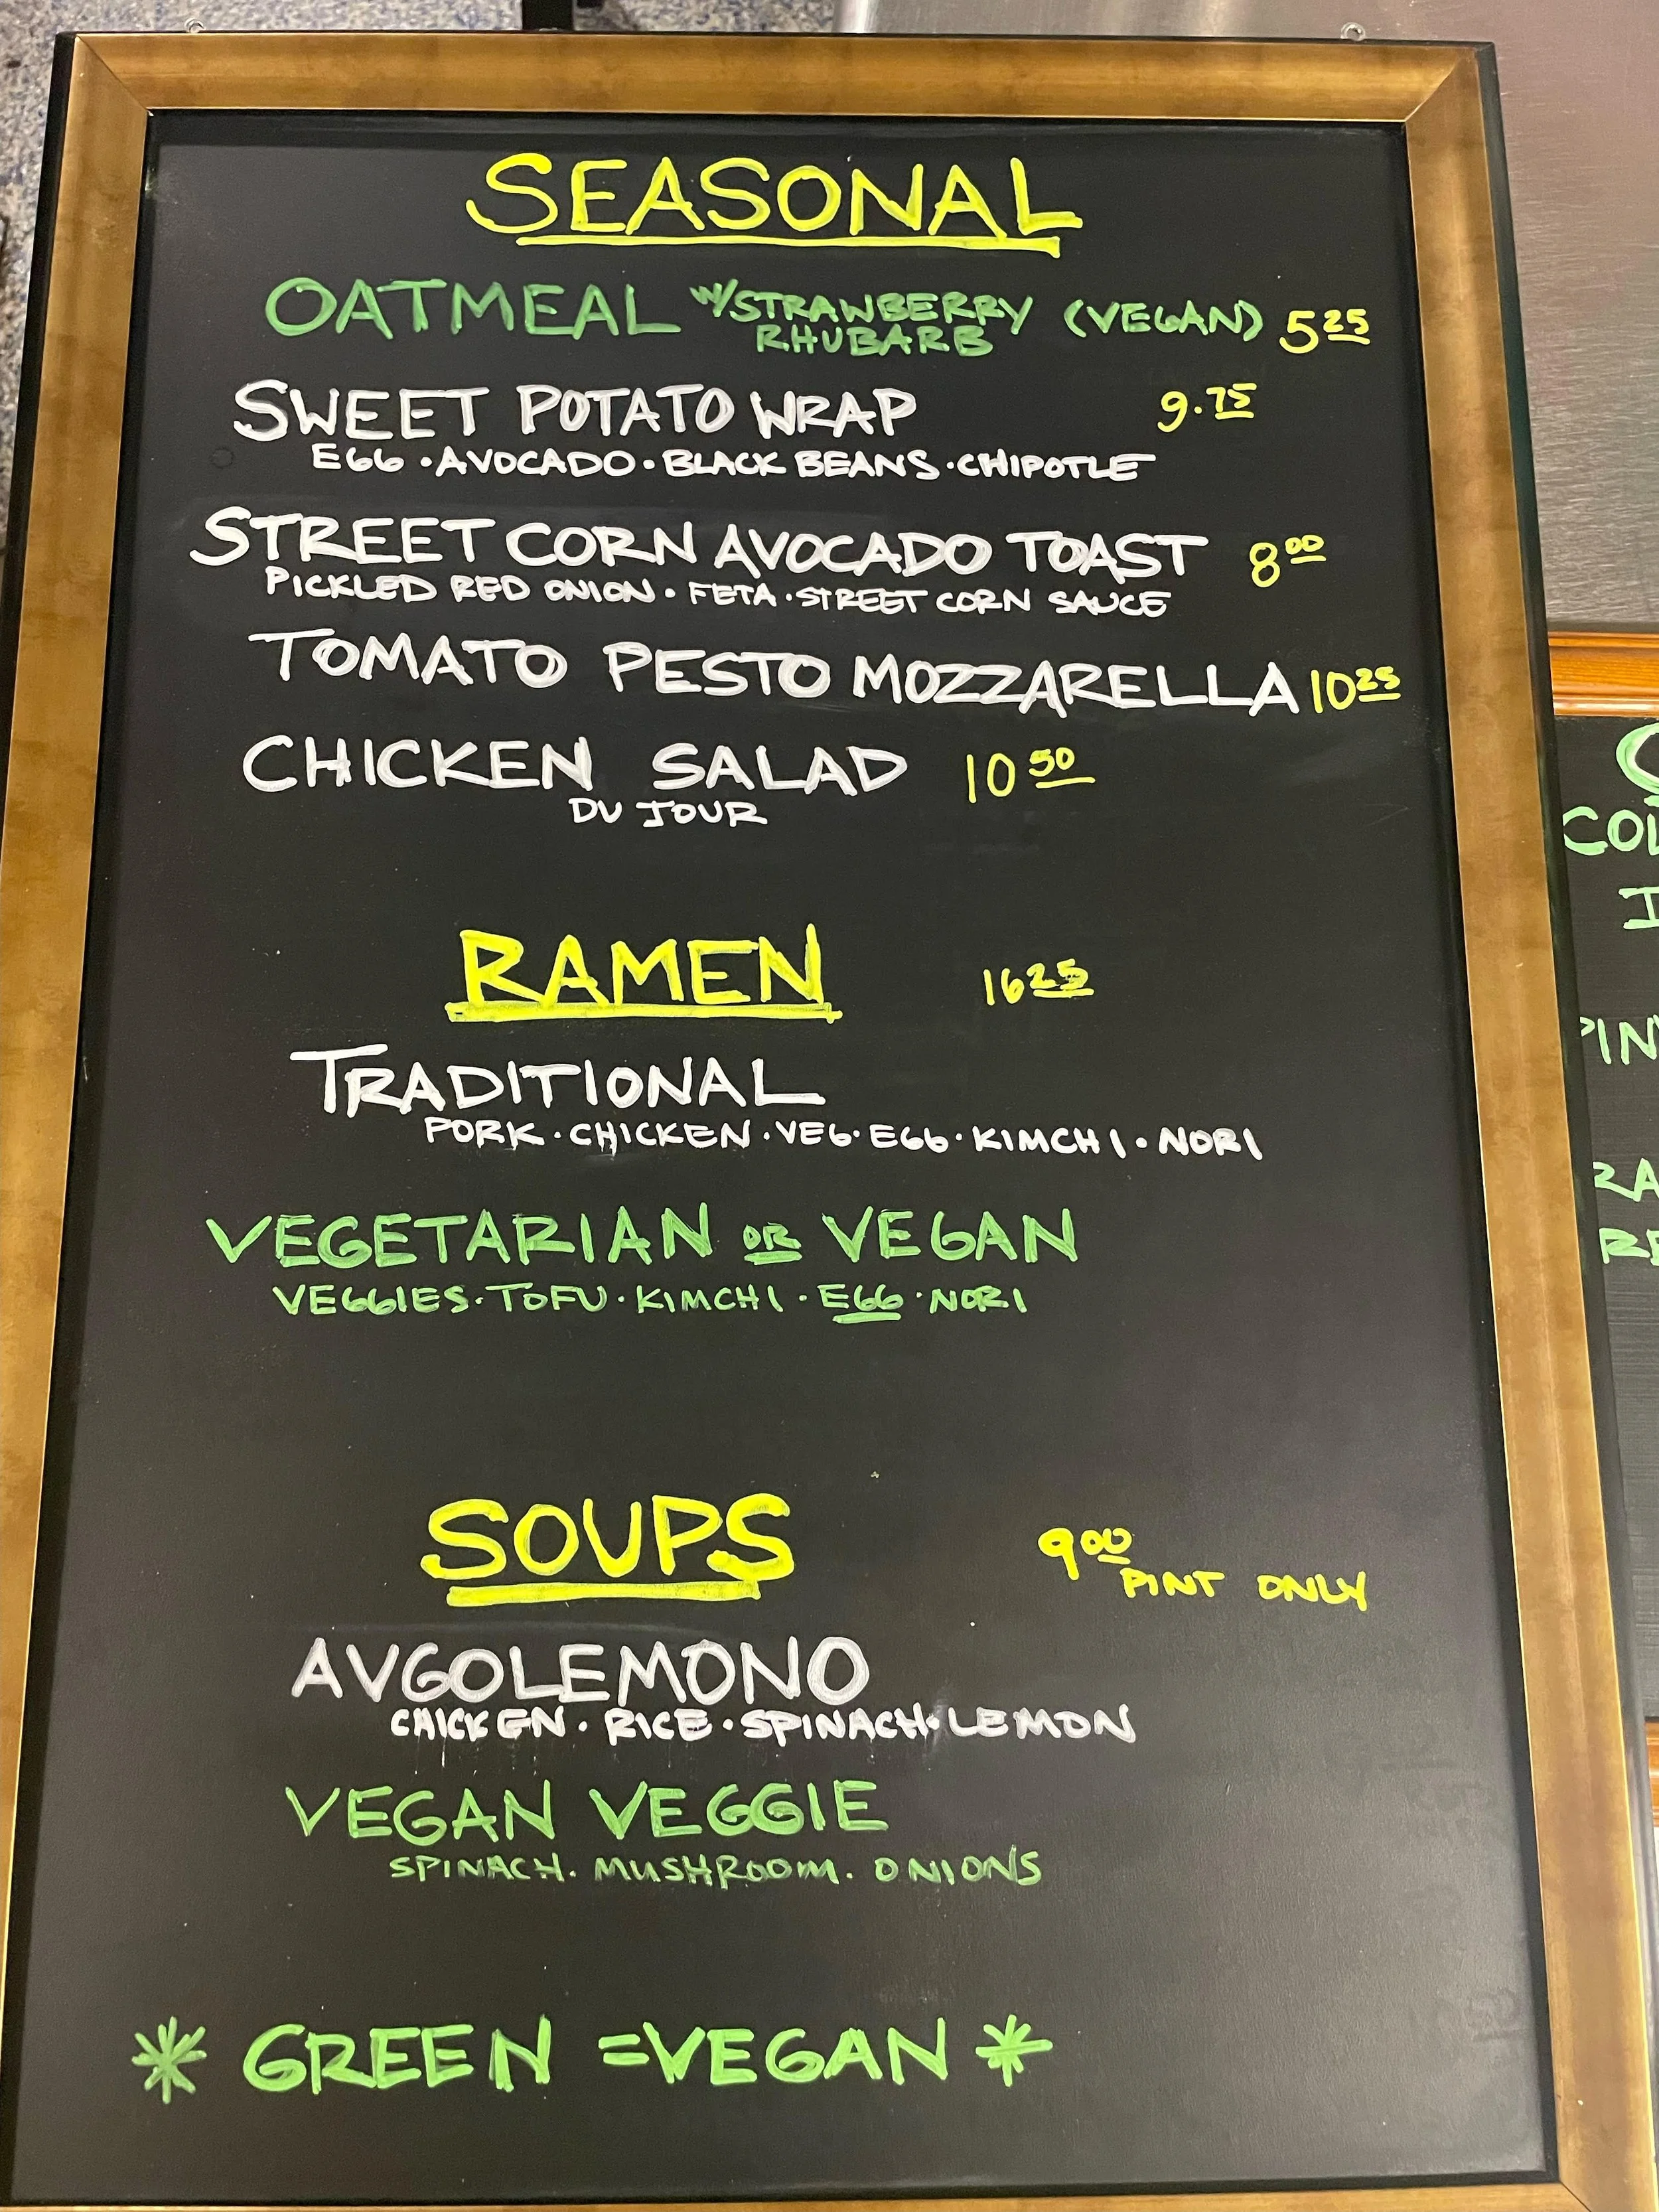 SEASONAL
OATMEAL W/STRAWBERRY RHUBARB (VEGAN) 5 25
SWEET POTATO WRAP 9.75
EGG · AVOCADO · BLACK BEANS · CHIPOTLE
STREET CORN AVOCADO TOAST 8 00
PICKLED RED ONION · FETA · STREET CORN SAUCE
TOMATO PESTO MOZZARELLA 10 25
CHICKEN SALAD 10 50
DU JOUR
RAMEN 16 25
TRADITIONAL
PORK · CHICKEN · VEG · EGG · KIMCHI · NORI
VEGETARIAN OR VEGAN
VEGGIES · TOFU · KIMCHI · EGG · NORI
SOUPS 9 00
PINT ONLY
AVGOLEMONO
CHICKEN · RICE · SPINACH · LEMON
VEGAN VEGGIE
SPINACH. MUSHROOM. ONIONS
* GREEN = VEGAN *